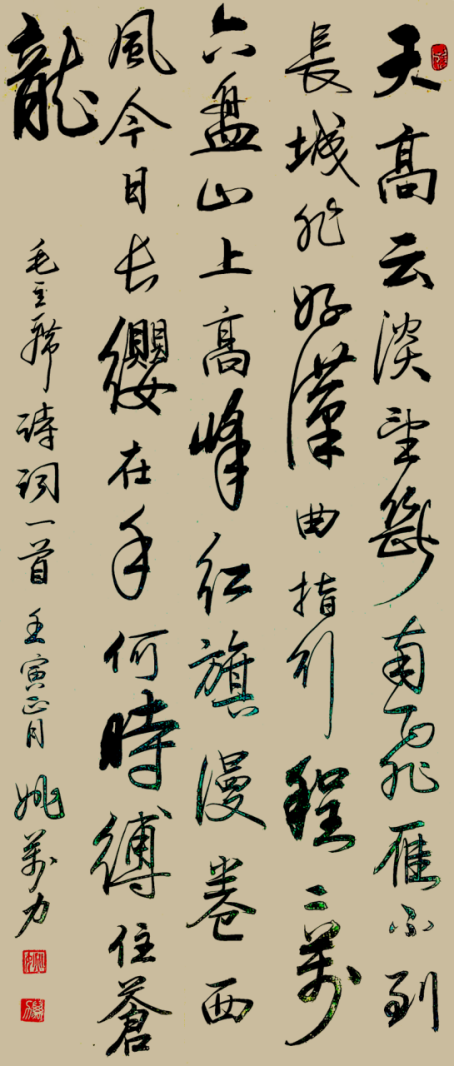 天高云淡望斷南飛雁不到
長城非好漢曲指引程二萬
六盘山上高峰红旗漫卷西
風今日长纓在手何時縛住蒼
龍
毛主席诗词一首 壬寅正月 姚萬力